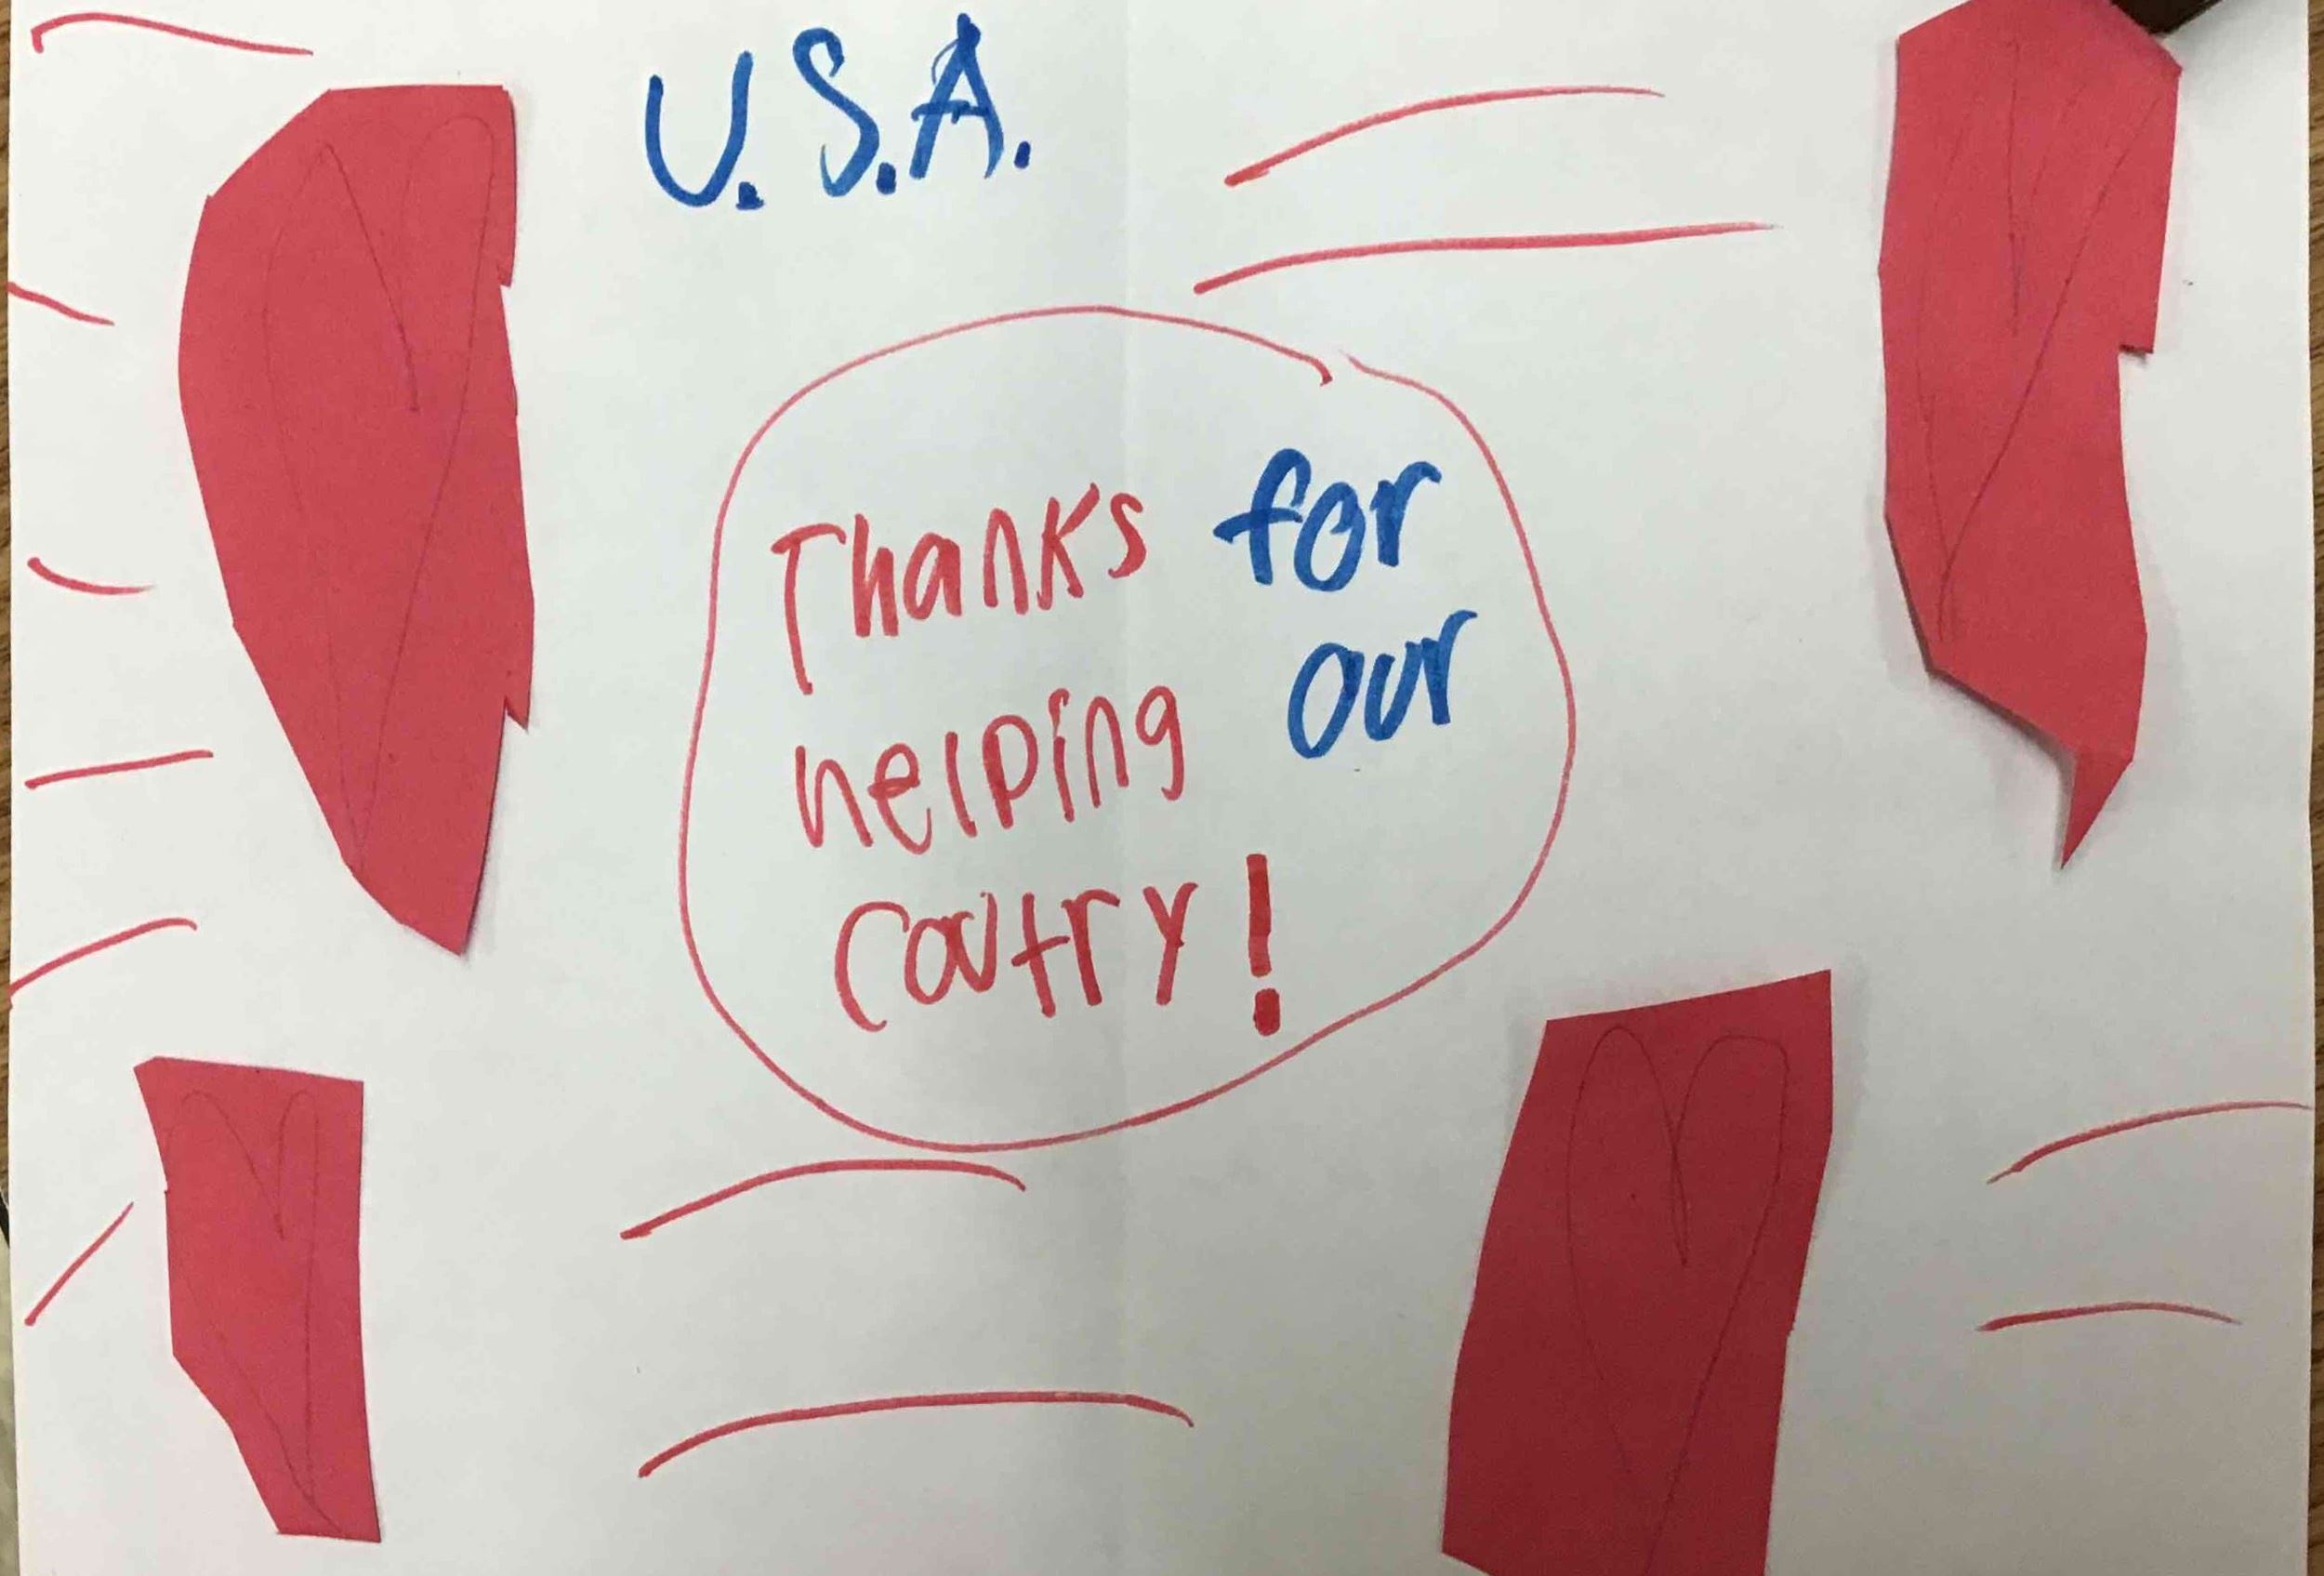 U.S.A.
Thanks for
helping our
Coutry!